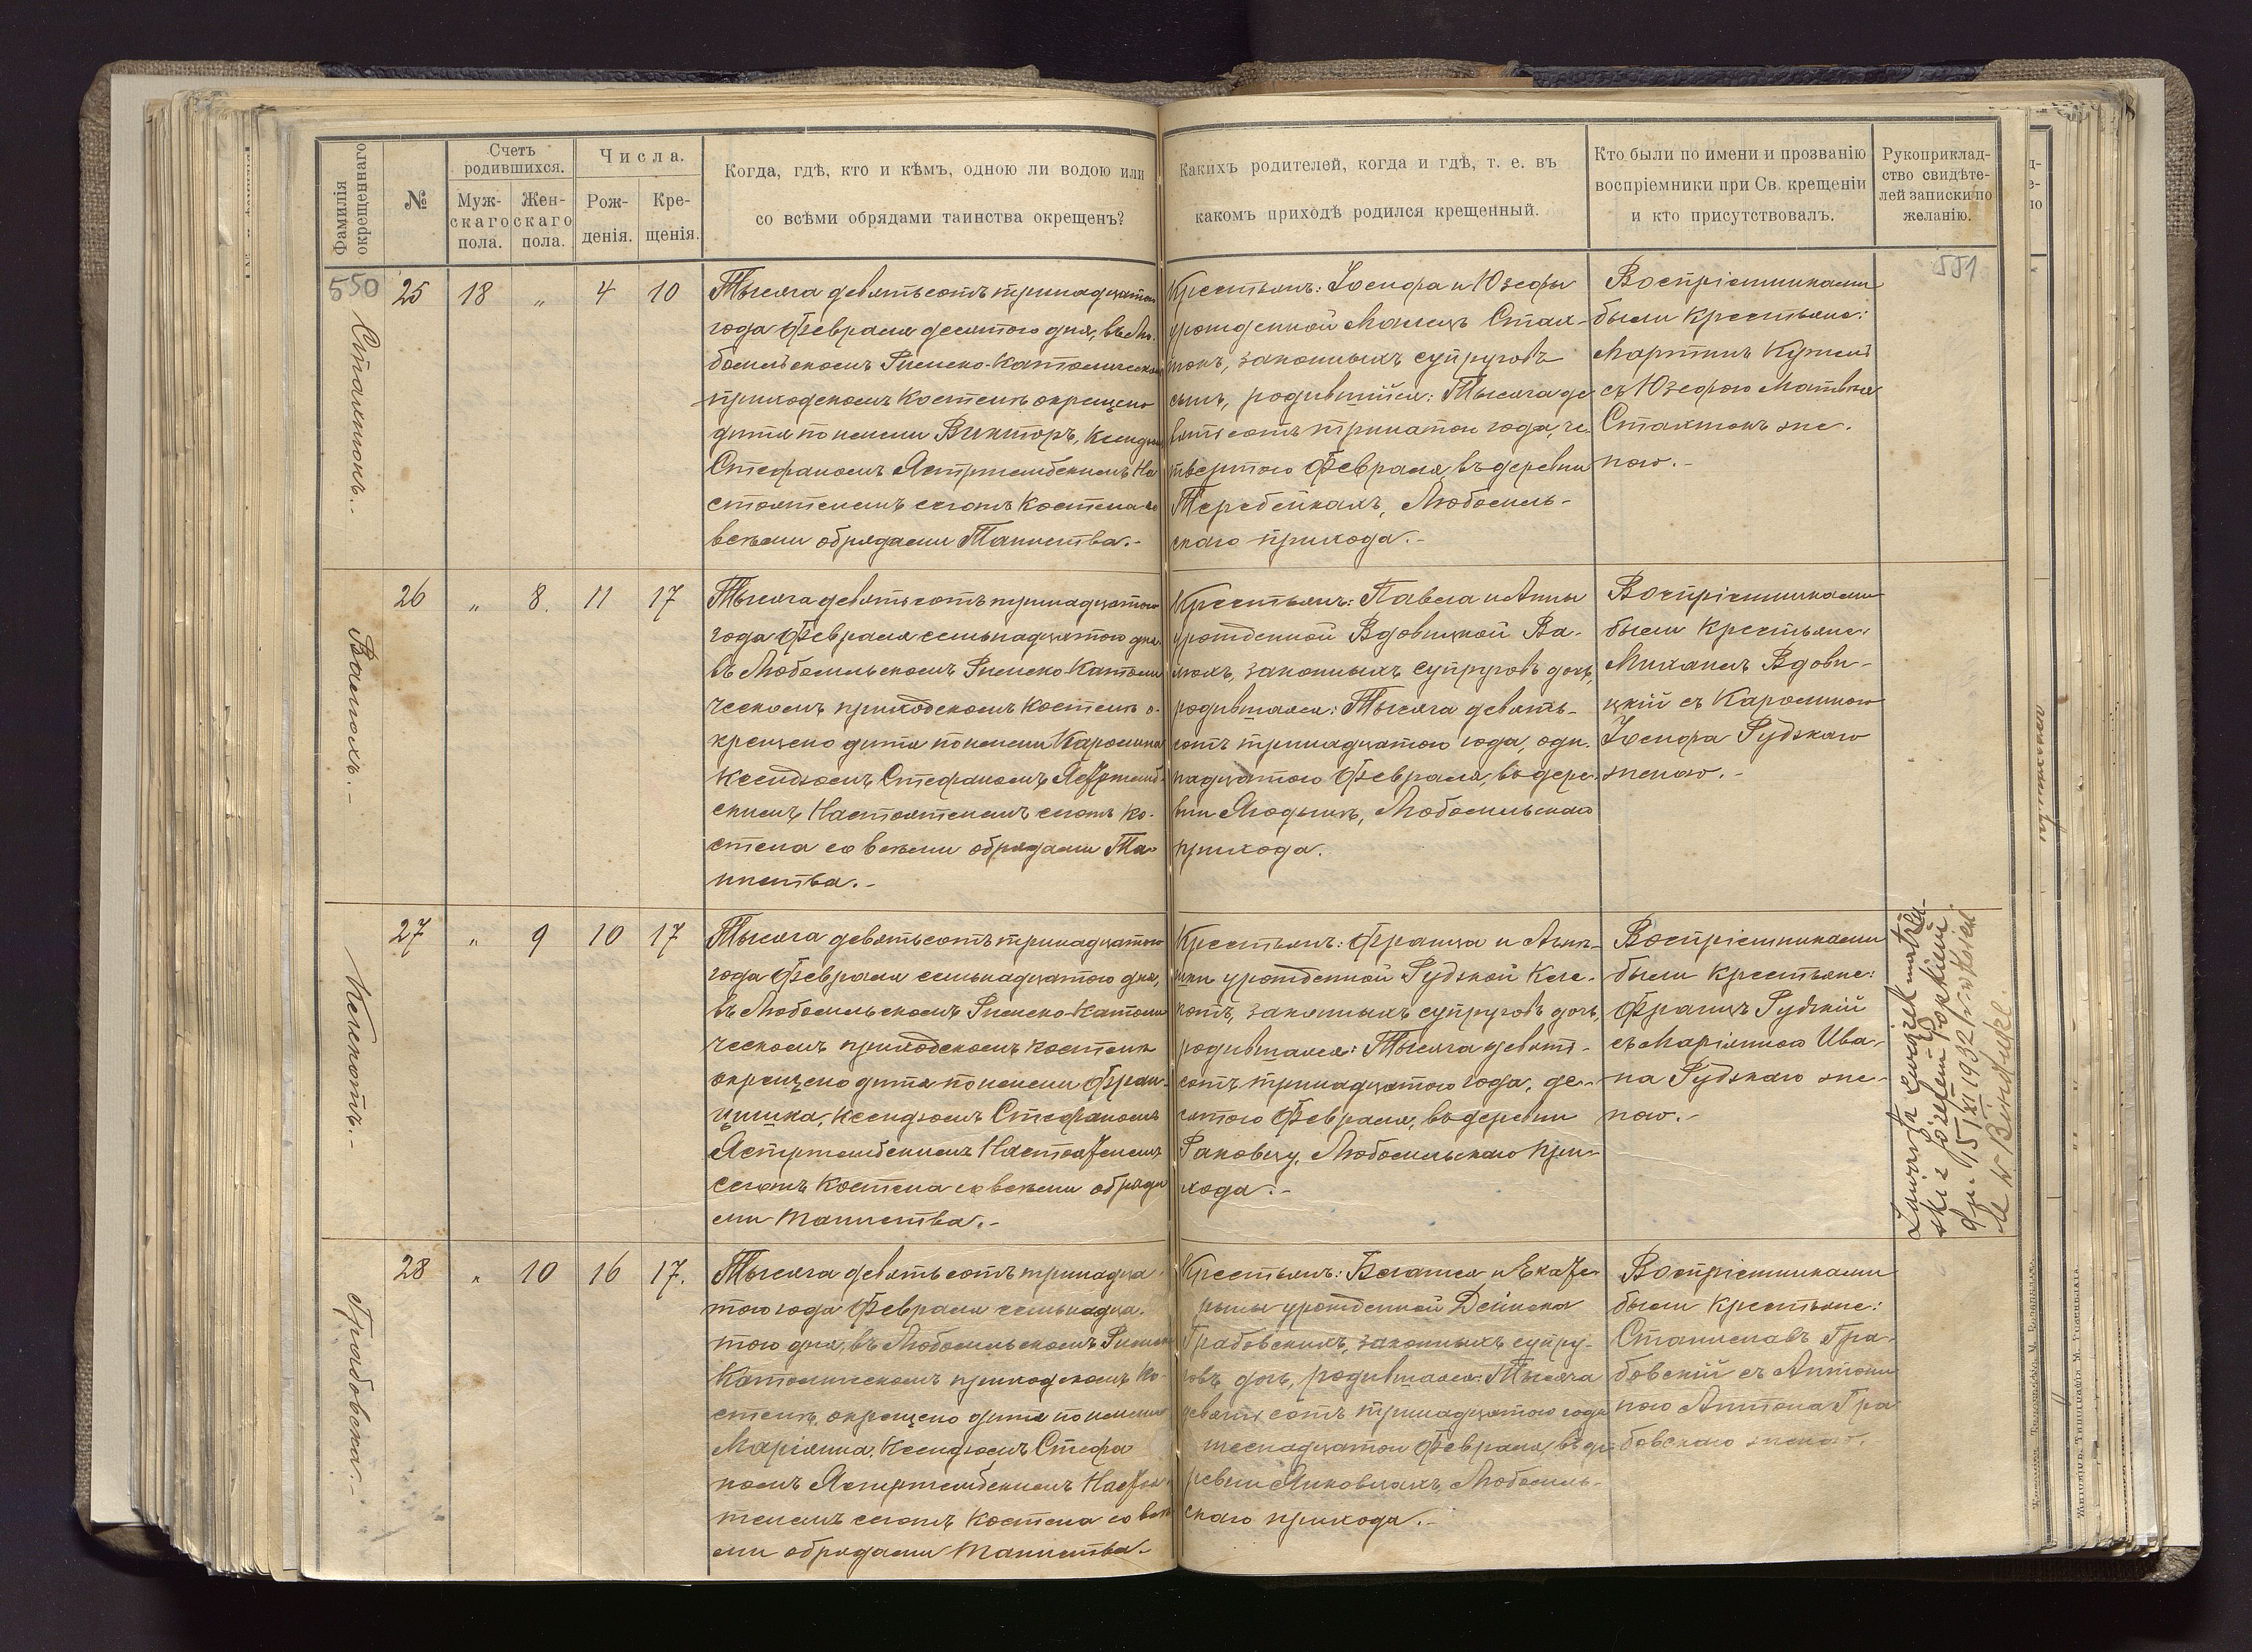 Фамилія окрещеннаго
№
Счетъ родившихся.
Мужскаго пола.
Женскаго пола.
Числа.
Рожденія.
Крещенія.
Когда, гдѣ, кто и кѣмъ, одною ли водою или
со всѣми обрядами таинства окрещенъ?
Какихъ родителей, когда и гдѣ, т. е. въ
какомъ приходѣ родился крещенный.
Кто были по имени и прозванію
воспріемники при Св. крещеніи
и кто присутствовалъ.
Рукоприклад-
ство свидѣте-
лей записки по
желанію.
550
551
25 18 „ 4 10
Тысяча девятьсотъ тринадцатаго
года Февраля десятаго дня, въ Лю-
бомльскомъ Римско-Католическомъ
приходскомъ Костелѣ окрещено
дитя по имени Викторъ, Ксендзомъ
Стефаномъ Ястржембскимъ На-
стоятелемъ сегожъ Костела со
всѣми обрядами Таинства.-
Крестьянъ: Іосифа и Юзефы
урожденной Малецъ Стах-
законныхъ супруговъ
сынъ, родившійся: Тысяча де-
вятьсотъ тринатаго года, че-
твертаго Февраля, въ деревни
Теребейкахъ, Любомль-
скаго прихода.-
Воспріемниками
были крестьяне:
Мартинъ
съ Юзефою Матвѣя
же-
ною.-
26 „ 8. 11 17
Тысяча девятьсотъ тринадцатаго
года Февраля семьнадцатого дня
въ Любомльскомъ Римско-Католи
ческомъ приходскомъ Костелѣ о-
крещено дитя по имени Каролина
Ксендзомъ Стефаномъ Ястржемб-
скимъ Настоятелемъ сегожъ Ко-
стела со всѣми обрядами Та-
инства.-
Крестьянъ: Павла и Анны
урожденной Вдовицкой Ва-
законныхъ супруговъ дочь,
родившаяся: Тысяча девять-
сотъ тринадцатаго года, оди-
надцатаго Февраля, въ дере-
вни Ягодинъ, Любомльскаго
прихода.
Воспріемниками
были крестьяне:
Михаилъ Вдови-
цкій съ Каролиною
Іосифа Рудзкаго
женою.-
27 „ 9 10 17
Кечкотъ.-
Тысяча девятьсотъ тринадцатаго
года Февраля семьнадцатого дня,
въ Любомльскомъ Римско-Католи
ческомъ приходскомъ Костелѣ
окрещено дитя по имени Фран-
цишка, Ксендзомъ Стефаномъ
Ястржембскимъ Настоятелемъ
сегожъ Костела со всѣми обряда
ми таинства.-
Крестьянъ: Франца и
урожденной Рудзкой Кеч-
котъ, законныхъ супруговъ дочь,
родившаяся: Тысяча девять-
сотъ тринадцатаго года, де-
сятаго Февраля, въ деревни
Раковцу, Любомльскаго при-
хода.-
Воспріемниками
были крестьяне:
Францъ Рудзкій
съ Маріянною Ива-
на Рудзкаго же-
ною.-
Zawarła związek małżeń-
ski z Józefem
dn. 15/XI 1932 r. w kościele
28 „ 10 16 17.
Грабовска.-
Тысяча девятьсотъ тринадца-
таго года Февраля семьнадца-
того дня, въ Любомльскомъ Римско
Католическомъ приходскомъ Ко-
стелѣ, окрещено дитя по имени
Маріянна, Ксендзомъ Стефа
номъ Ястржембскимъ Настоя-
телемъ сегожъ Костела со всѣ-
ми обрядами таинства.-
Крестьянъ: и Екате-
рины урожденной Дейнека
Грабовскихъ, законныхъ супру-
говъ дочь, родившаяся: Тысяча
девятьсотъ тринадцатаго года
шеснадцатаго Февраля, въ де-
ревни Янковцахъ, Любомль-
скаго прихода.-
Воспріемниками
были крестьяне:
Станиславъ Гра-
бовскій съ Антони-
ною Антона Гра
бовскаго женою.